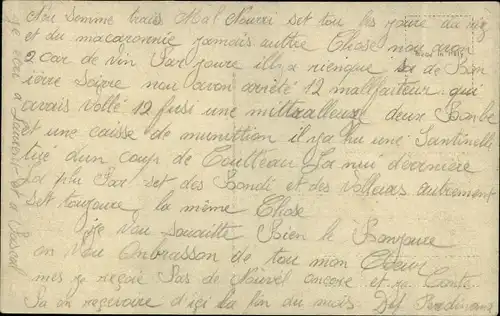 Nou Somme trais Mal Nourri set tou les joure du riz
et du macaronnie jamais auttre Chose nou avon
2 car de vin Par joure ille a rienque sa de Bon
ière Soire nou avon arriété 12 mallfaiteur qui
avais vollé 12 fusi une mittrailleur deux Bonbe
et une caisse de munittion il ya hu une Santinelle
tué d'un coup de Coutteau La nui dernière
sa plu Par set des Bandi et des volleurs autrement
set toujoure la même Chose
Je vou souaitte Bien le Bonjoure
an vou Onbrasson de tou mon Cheur
mes re reçoie Pas de Nouvel ancore et re Conte
Sa an reçevoire d'içi la fin du mois
Je ecri a Laurent et a Pascal